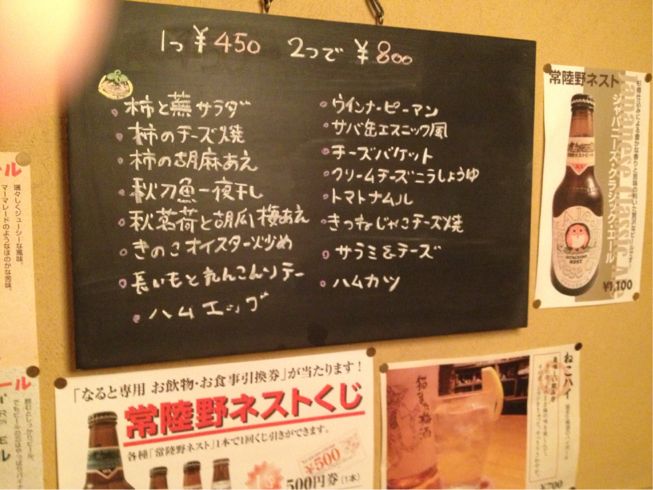 1つ ¥450 2つで ¥800
・柿と蕪サラダ
・柿のチーズ焼
・柿の胡麻あえ
・秋刀魚一夜干し
・秋茗荷と胡瓜梅あえ
・きのこオイスター炒め
・長いもとれんこんソテー
・ハムエッグ
・ウインナーピーマン
・サバ缶エスニック風
・チーズバケット
・クリームチーズニラしょうゆ
・トマトナムル
・きつねじゃこチーズ焼
・サラミ&チーズ
・ハムカツ
常陸野ネスト
ジャパニーズ・クラシック・エール
¥1,100
瑞々しくジューシーな風味。
マーマレードのようなほのかな苦味。
「なると専用 お飲物・お食事引換券」が当たります!
常陸野ネストくじ
各種「常陸野ネスト」1本で1回くじ引きができます。
¥500
500円券(1本)
ねこハイ
¥700